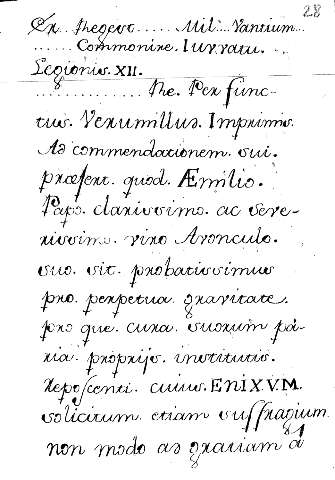 28
Ex. thegest...... Mil... Vantium...
...... Commonire. Iuvvatu...
Legionis. XII.
.............. the. Per func-
tus. Verumillud. Imprimis.
Ad commendationem. sui.
præsent. quod. Æmilio.
Papo. clarissimo. ac Seve-
rissimo. viro Avonculo.
suo. sit. probatissimus
pro. perpetua gravitate.
pro que. cura. suorum pa-
ria. proprijs. institutis.
Reposcenti. cuius. ENIXVM.
solicitum. etiam suffragium.
non modo ad gratiam a